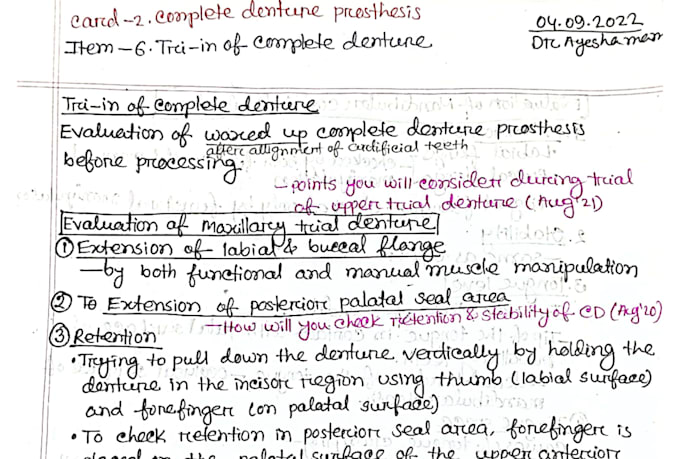 Card-2. Complete denture prosthesis
Item-6. Tri-in of complete denture
04.09.2022
Dr Ayesha mam
Tri-in of complete denture
Evaluation of waxed up complete denture prosthesis
after allignment of artificial teeth
before processing.
- points you will consider during trial
of upper trial denture (Aug'21)
Evaluation of Maxillary trial denture
① Extension of labial & buccal flange
— by both functional and manual muscle manipulation
② To Extension of posterior palatal seal area
- How will you check retention & stability of CD (Aug'20)
③ Retention
• Trying to pull down the denture verdically by holding the
denture in the incisor region using thumb (labial surface)
and forefinger (on palatal surface)
• To check retention in posterior seal area, forefinger is
placed on the palatal surface of the upper anterior